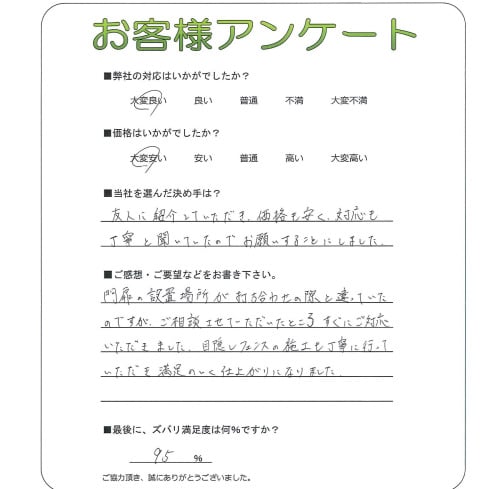 お客様アンケート
■弊社の対応はいかがでしたか？
大変良い 良い 普通 不満 大変不満
■価格はいかがでしたか？
大変安い 安い 普通 高い 大変高い
■当社を選んだ決め手は？
友人に紹介していただき、価格も安く、対応も
丁寧と聞いていたのでお願いすることにしました。
■ご感想・ご要望などをお書き下さい。
門扉の設置場所が打ち合わせの際と違っていた
のですが、ご相談させていただいたところすぐにご対応
いただきました。目隠しフェンスの施工も丁寧に行って
いただき満足のいく仕上がりになりました。
■最後に、ズバリ満足度は何%ですか？
95 %
ご協力頂き、誠にありがとうございました。